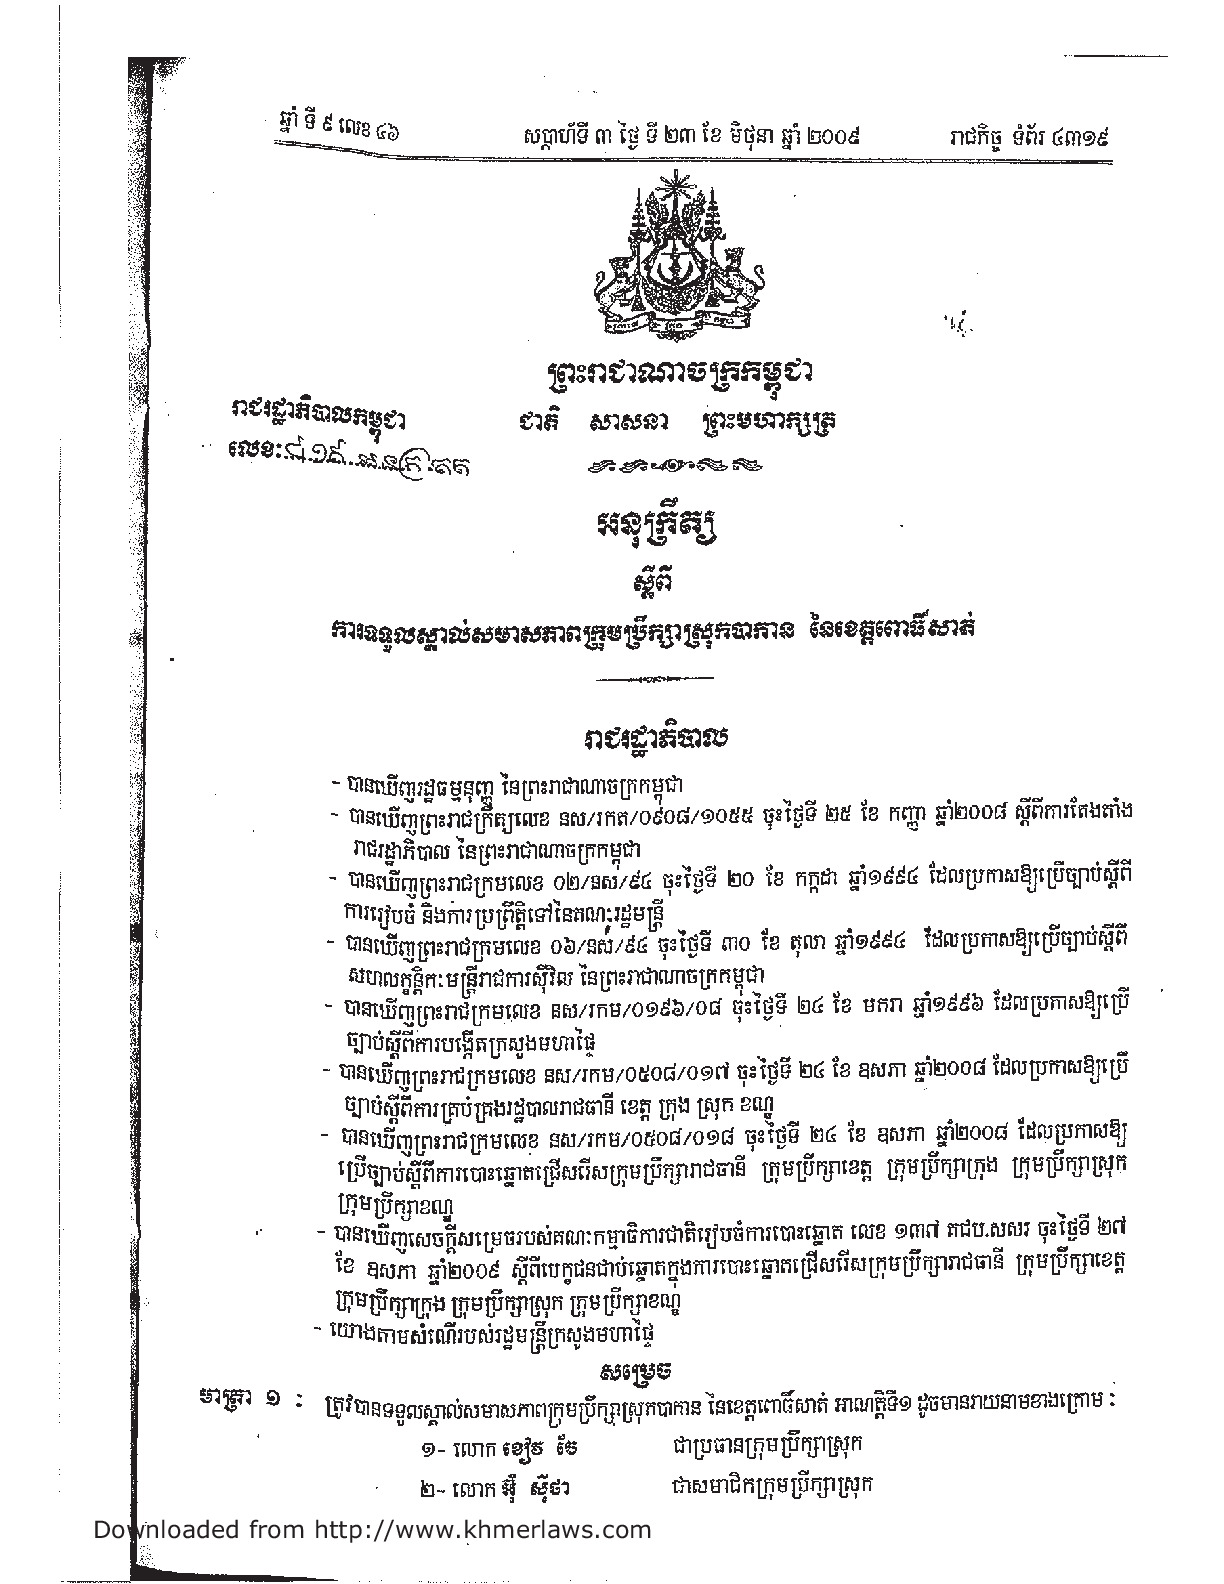 ឆ្នាំ ទី ៩ លេខ ៤៦ សប្តាហ៍ទី ៣ ថ្ងៃ ទី ២៣ ខែ មិថុនា ឆ្នាំ ២០០៩ រាជកិច្ច ទំព័រ ៤៣១៩
ព្រះរាជាណាចក្រកម្ពុជា
រាជរដ្ឋាភិបាលកម្ពុជា ជាតិ សាសនា ព្រះមហាក្សត្រ
លេខៈ អនក្រ.តត
អនុក្រឹត្យ
ស្តីពី
ការទទួលស្គាល់សមាសភាពក្រុមប្រឹក្សាស្រុកបាកាន នៃខេត្តពោធិ៍សាត់
រាជរដ្ឋាភិបាល
- បានឃើញរដ្ឋធម្មនុញ្ញ នៃព្រះរាជាណាចក្រកម្ពុជា
- បានឃើញព្រះរាជក្រឹត្យលេខ នស/រកត/០៩០៨/១០៥៥ ចុះថ្ងៃទី ២៥ ខែ កញ្ញា ឆ្នាំ២០០៨ ស្តីពីការតែងតាំង
រាជរដ្ឋាភិបាល នៃព្រះរាជាណាចក្រកម្ពុជា
- បានឃើញព្រះរាជក្រមលេខ ០២/នស/៩៤ ចុះថ្ងៃទី ២០ ខែ កក្កដា ឆ្នាំ១៩៩៤ ដែលប្រកាសឱ្យប្រើច្បាប់ស្តីពី
ការរៀបចំ និងការប្រព្រឹត្តិទៅនៃគណៈរដ្ឋមន្ត្រី
- បានឃើញព្រះរាជក្រមលេខ ០៦/នស/៩៤ ចុះថ្ងៃទី ៣០ ខែ តុលា ឆ្នាំ១៩៩៤ ដែលប្រកាសឱ្យប្រើច្បាប់ស្តីពី
សហលក្ខន្តិកៈមន្ត្រីរាជការស៊ីវិល នៃព្រះរាជាណាចក្រកម្ពុជា
- បានឃើញព្រះរាជក្រមលេខ នស/រកម/០១៩៦/០៨ ចុះថ្ងៃទី ២៤ ខែ មករា ឆ្នាំ១៩៩៦ ដែលប្រកាសឱ្យប្រើ
ច្បាប់ស្តីពីការបង្កើតក្រសួងមហាផ្ទៃ
- បានឃើញព្រះរាជក្រមលេខ នស/រកម/០៥០៨/០១៧ ចុះថ្ងៃទី ២៤ ខែ ឧសភា ឆ្នាំ២០០៨ ដែលប្រកាសឱ្យប្រើ
ច្បាប់ស្តីពីការគ្រប់គ្រងរដ្ឋបាលរាជធានី ខេត្ត ក្រុង ស្រុក ខណ្ឌ
- បានឃើញព្រះរាជក្រមលេខ នស/រកម/០៥០៨/០១៨ ចុះថ្ងៃទី ២៤ ខែ ឧសភា ឆ្នាំ២០០៨ ដែលប្រកាសឱ្យ
ប្រើច្បាប់ស្តីពីការបោះឆ្នោតជ្រើសរើសក្រុមប្រឹក្សារាជធានី ក្រុមប្រឹក្សាខេត្ត ក្រុមប្រឹក្សាក្រុង ក្រុមប្រឹក្សាស្រុក
ក្រុមប្រឹក្សាខណ្ឌ
- បានឃើញសេចក្តីសម្រេចរបស់គណៈកម្មាធិការជាតិរៀបចំការបោះឆ្នោត លេខ ១៣៧ គជប.សសរ ចុះថ្ងៃទី ២៧
ខែ ឧសភា ឆ្នាំ២០០៩ ស្តីពីបេក្ខជនជាប់ឆ្នោតក្នុងការបោះឆ្នោតជ្រើសរើសក្រុមប្រឹក្សារាជធានី ក្រុមប្រឹក្សាខេត្ត
ក្រុមប្រឹក្សាក្រុង ក្រុមប្រឹក្សាស្រុក ក្រុមប្រឹក្សាខណ្ឌ
- យោងតាមសំណើរបស់រដ្ឋមន្ត្រីក្រសួងមហាផ្ទៃ
សម្រេច
មាត្រា ១ : ត្រូវបានទទួលស្គាល់សមាសភាពក្រុមប្រឹក្សាស្រុកបាកាន នៃខេត្តពោធិ៍សាត់ អាណត្តិទី១ ដូចមានរាយនាមខាងក្រោម :
១- លោក ខៀវ ជាប្រធានក្រុមប្រឹក្សាស្រុក
២- លោក អ៊ុំ ស៊ីថា ជាសមាជិកក្រុមប្រឹក្សាស្រុក
Downloaded from http://www.khmerlaws.com